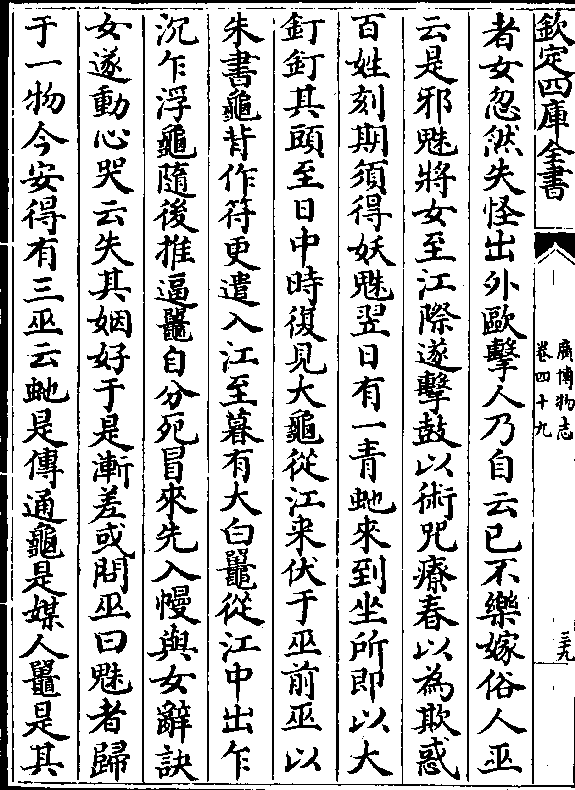 欽定四庫全書
廣博物志
卷四十九
三九
者女忽然失怪出外歐擊人乃自云已不樂嫁俗人巫
云是邪魅將女至江際遂擊鼓以術咒療春以為欺惑
百姓刻期須得妖魅翌日有一青虵來到坐所即以大
釘釘其頭至日中時復見大龜從江来伏于巫前巫以
朱書龜背作符更遣入江至暮有大白鼉從江中出乍
沉乍浮龜隨後推逼鼉自分死冒來先入幔與女辭訣
女遂動心哭云失其姻好于是漸差或問巫曰魅者歸
于一物今安得有三巫云虵是傳通龜是媒人鼉是其